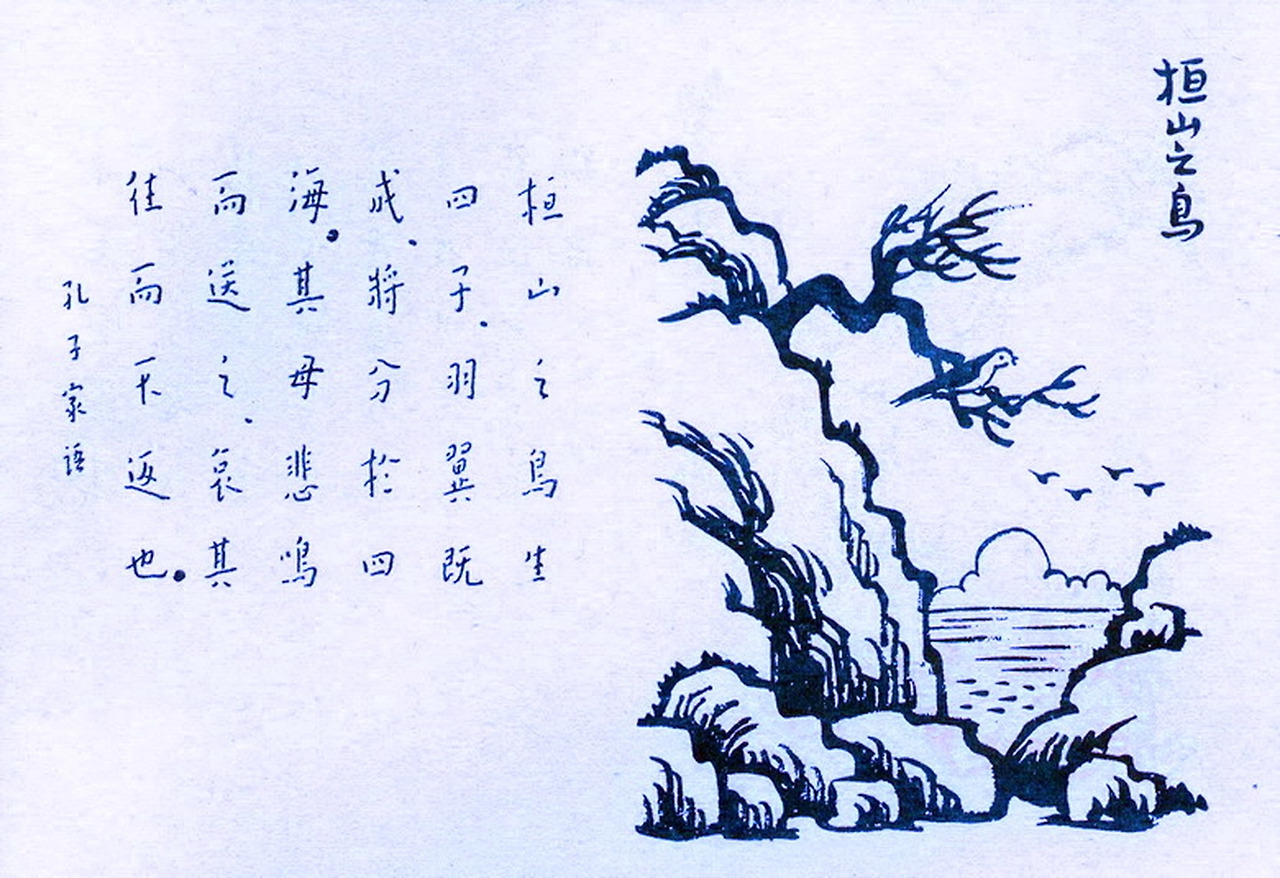 桓山之鳥
桓山之鳥生
四子.羽翼既
成.將分於四
海。其母悲鳴
而送之.哀其
往而不返也。
孔子家語